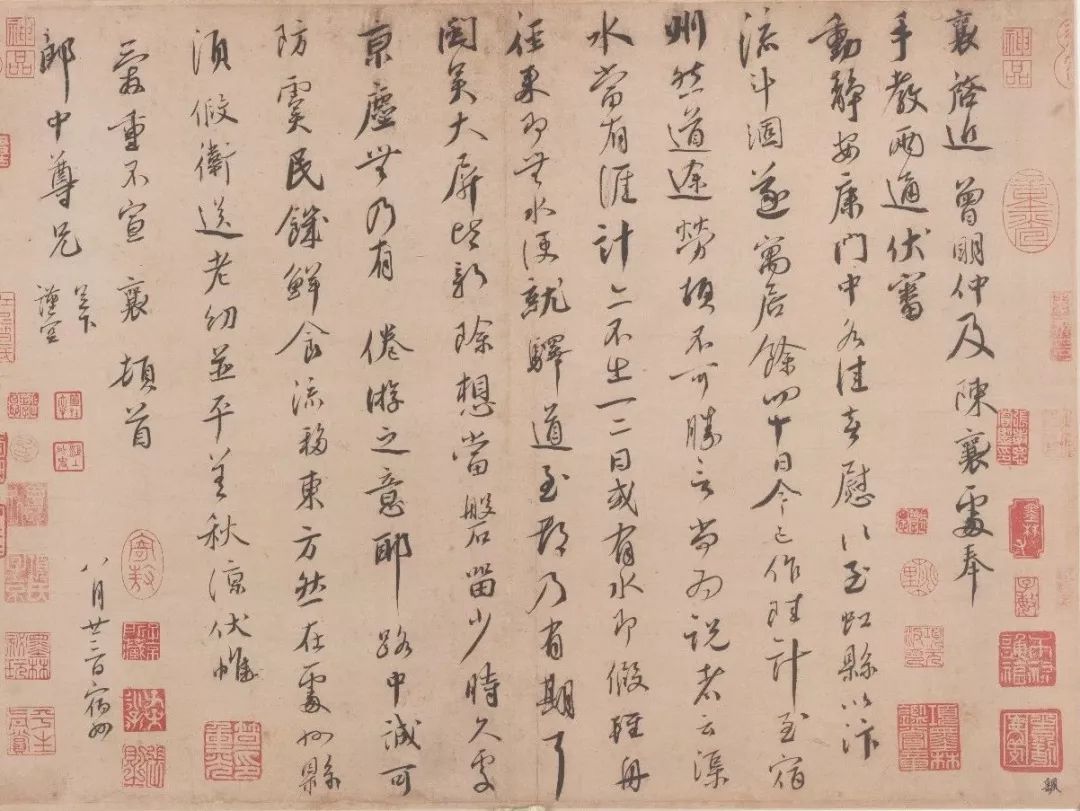 襄啓近 曾明仲及陳襄處奉
手教兩通伏審
動靜安康門中各佳喜慰〻至虹縣以汴
流斗涸遂寓居餘四十日今已作陸計至宿
州然道途勞頓不可勝言尚為説者云渠
水當有涯計亦不出一二日或有水即假輕舟
徑來即無水便就驛道至都乃有期耳
聞吳大屏皆新除想當磐留少時久處
京塵無乃有 倦游之意耶路中誠可
防虞民饑鮮食流移東方然在處州縣
須假衛送老幼並平善秋涼伏惟
愛重不宣 襄 頓首
郎中尊兄 足下
謹空
八月廿三日宿州
神品